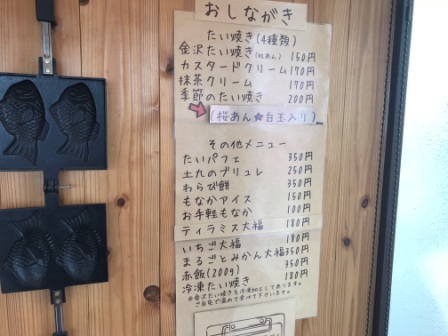 おしながき
たい焼き(4種類)
金沢たい焼き(粒あん) 150円
カスタードクリーム 170円
抹茶クリーム 170円
季節のたい焼き 200円
(桜あん★白玉入り)
その他メニュー
たいパフェ 350円
土九のブリュレ 250円
わらび餅 350円
もなかアイス 150円
お手軽もなか 100円
ティラミス大福 180円
いちご大福 180円
まるごとみかん大福 350円
赤飯(200g) 350円
冷凍たい焼き 180円
※金沢たい焼きを冷凍にしてあります。
ご自宅で温めて下さいませ。